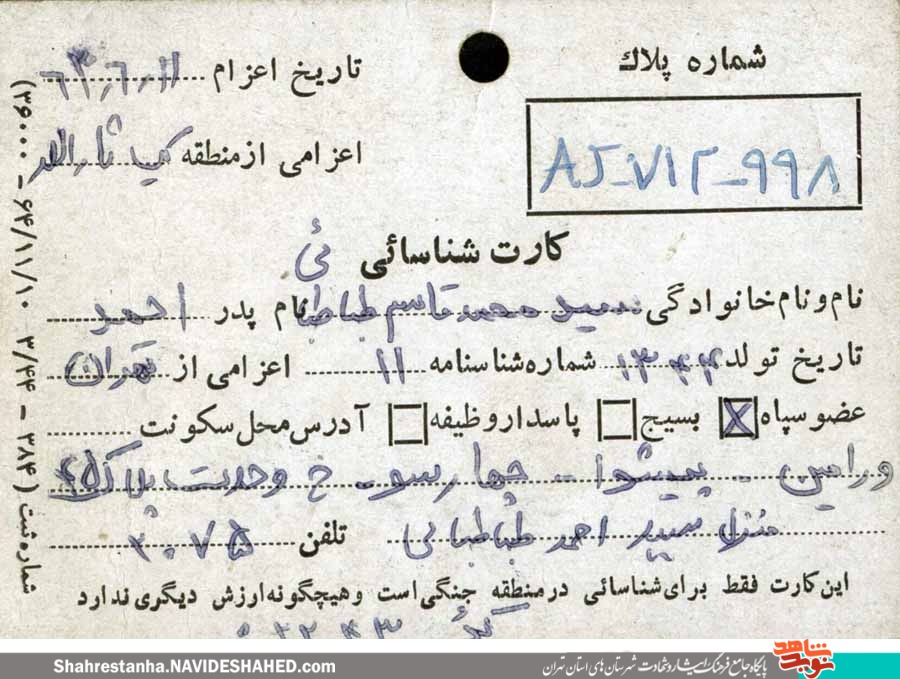 شماره پلاك
AJ-۷۱۲-۹۹۸
تاریخ اعزام ۶۳٫۶٫۱۱
اعزامی ازمنطقه ثارالله
کارت شناسائی
نام ونام خانوادگی سید محمد قاسم طباطبائی نام پدر احمد
تاریخ تولد ۱۳۴۴ شماره شناسنامه ۱۱ اعزامی از تهران
عضو سپاه بسیج پاسدار وظیفه آدرس محل سکونت
ورامین - پیشوا - چهارسو - خ وحدت پلاک
منزل سید احمد طباطبائی تلفن ۳۰۷۵
این کارت فقط برای شناسائی در منطقه جنگی است وهیچگونه ارزش دیگری ندارد
شماره ثبت ( ۳۸۴ - ۳/۴۴ - ۶۴/۱۱/۱۰ - ۳۶۰۰۰)
Shahrestanha.NAVIDESHAHED.com
پایگاه جامع فرهنگ ایثار و شهادت شهرستان های استان تهران
نوید شاهد